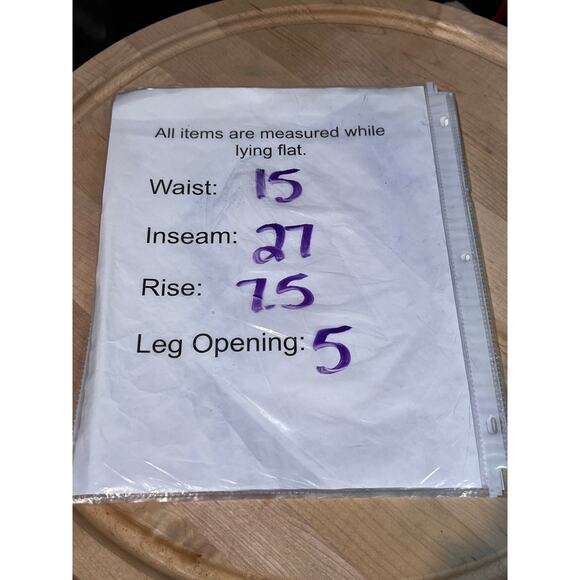 All items are measured while
lying flat.
Waist: 15
Inseam: 27
Rise: 7.5
Leg Opening: 5